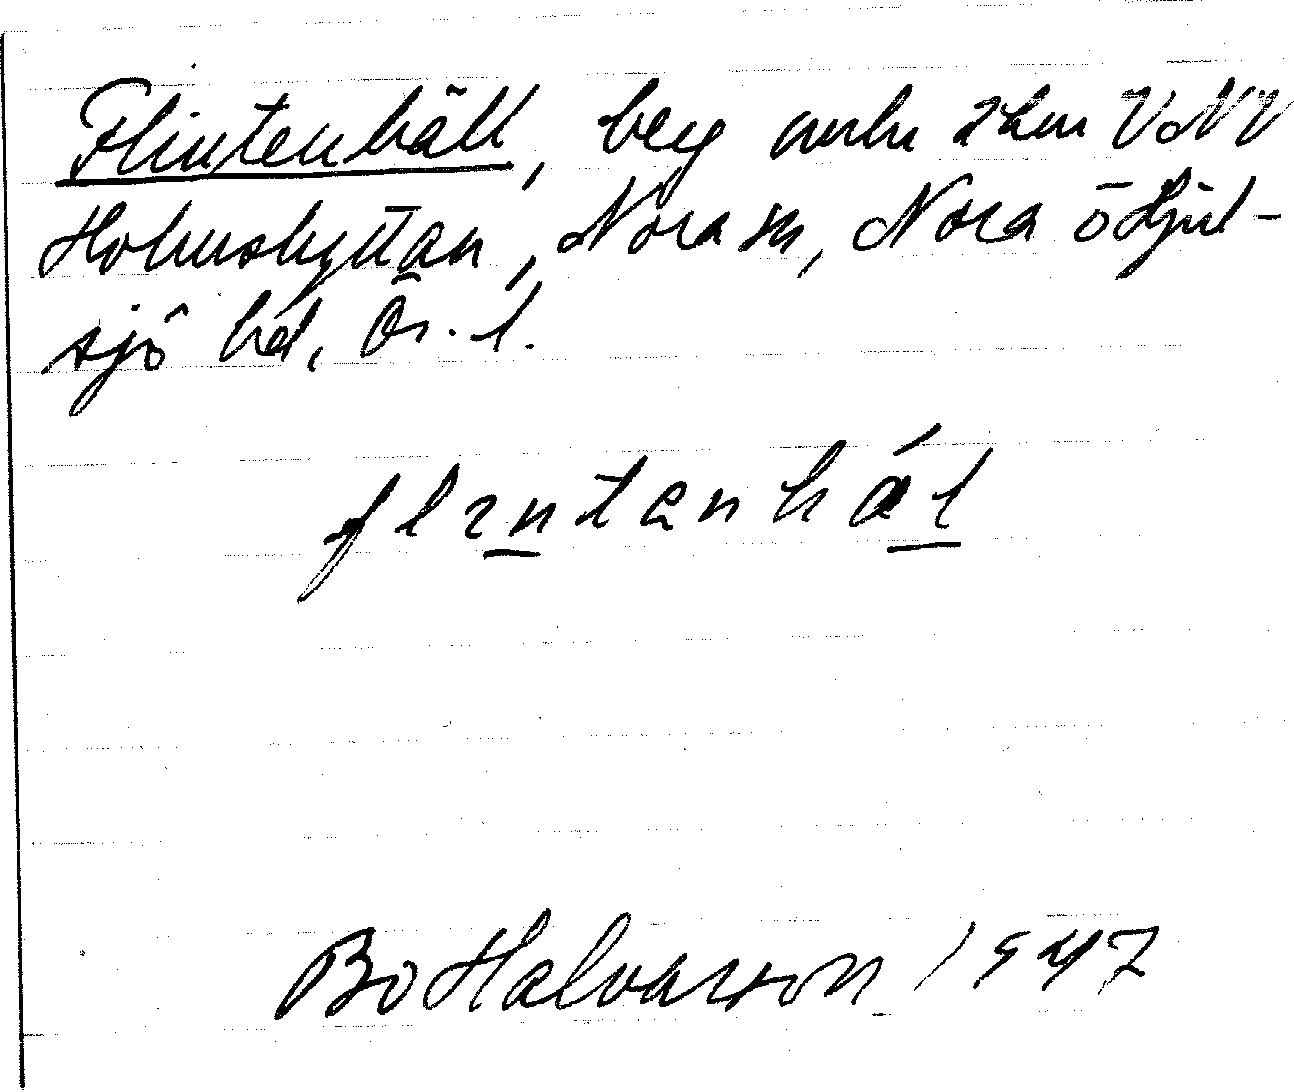 Flintenhäll, berg omkr 2 km VNV
Holmshyttan, Nora sn, Nora o Hjul-
sjö hd, Ör. l.
flintenhä́l
Bo Halvarsson 1947